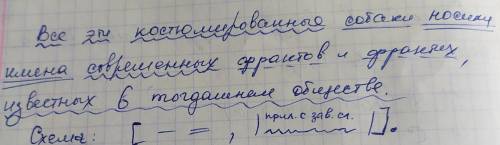 Все эти костюмированные собаки носили
имена современных франтов и франтих,
известных в тогдашнем обществе.
Схема: [ — = , | прил. с зав. сл. |].